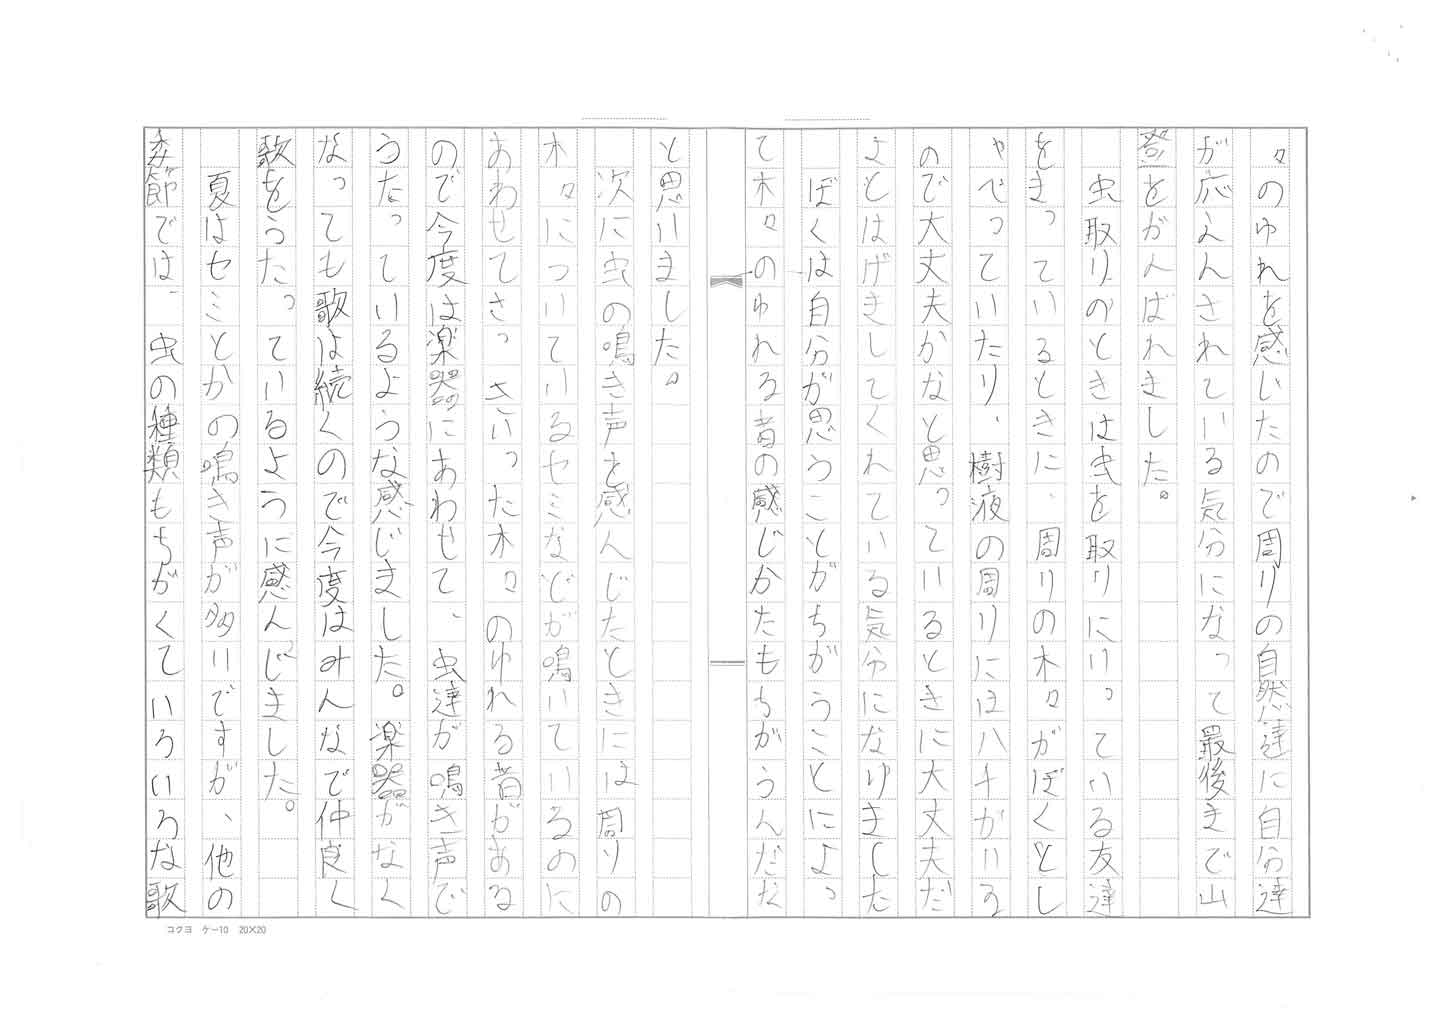 々のゆれを感じたので周りの自然達に自分達
が応えんされている気分になって最後まで山
登をがんばれました。
虫取りのときは虫を取りにいっている友達
をまっているときに、周りの木々がぼくとし
ゃべっていたり、樹液の周りにはハチがいる
ので大丈夫かなと思っているときに大丈夫だ
よとはげきしてくれている気分になりました
ぼくは自分が思うことがちがうことによっ
て木々のゆれる音の感じかたもちがうんだな
と思いました。
次に虫の鳴き声を感んじたときには周りの
木々についているセミなどが鳴いているのに
あわせてさっきいった木々のゆれる音がある
ので今度は楽器にあわせて、虫達が鳴き声で
うたっているような感じました。楽器がなく
なっても歌は続くので今度はみんなで仲良く
歌をうたっているように感んじました。
夏はセミとかの鳴き声が多いですが、他の
季節では、虫の種類もちがくていろいろな歌
コクヨ ケー10 20×20